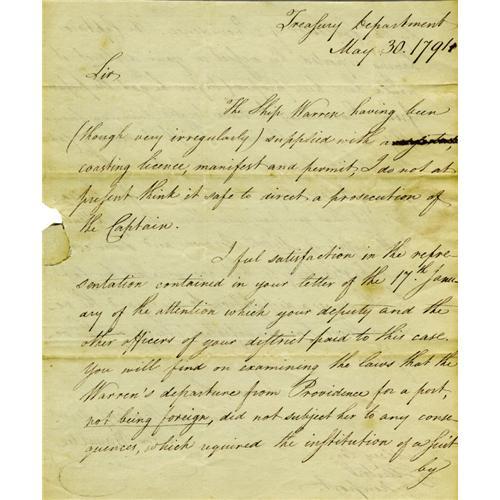 Treasury Department
May 30. 1794
Sir,
The Ship Warren having been
(though very irregularly) supplied with a
coasting licence, manifest and permit, I do not at
present think it safe to direct a prosecution of
the Captain.
I feel satisfaction in the repre-
sentation contained in your letter of the 17th. Janu-
ary of the attention which your deputy and the
other officers of your district paid to this case.
You will find on examining the laws that the
Warren's departure from Providence for a port,
not being foreign, did not subject her to any conse-
quences, which required the institution of a Suit
by